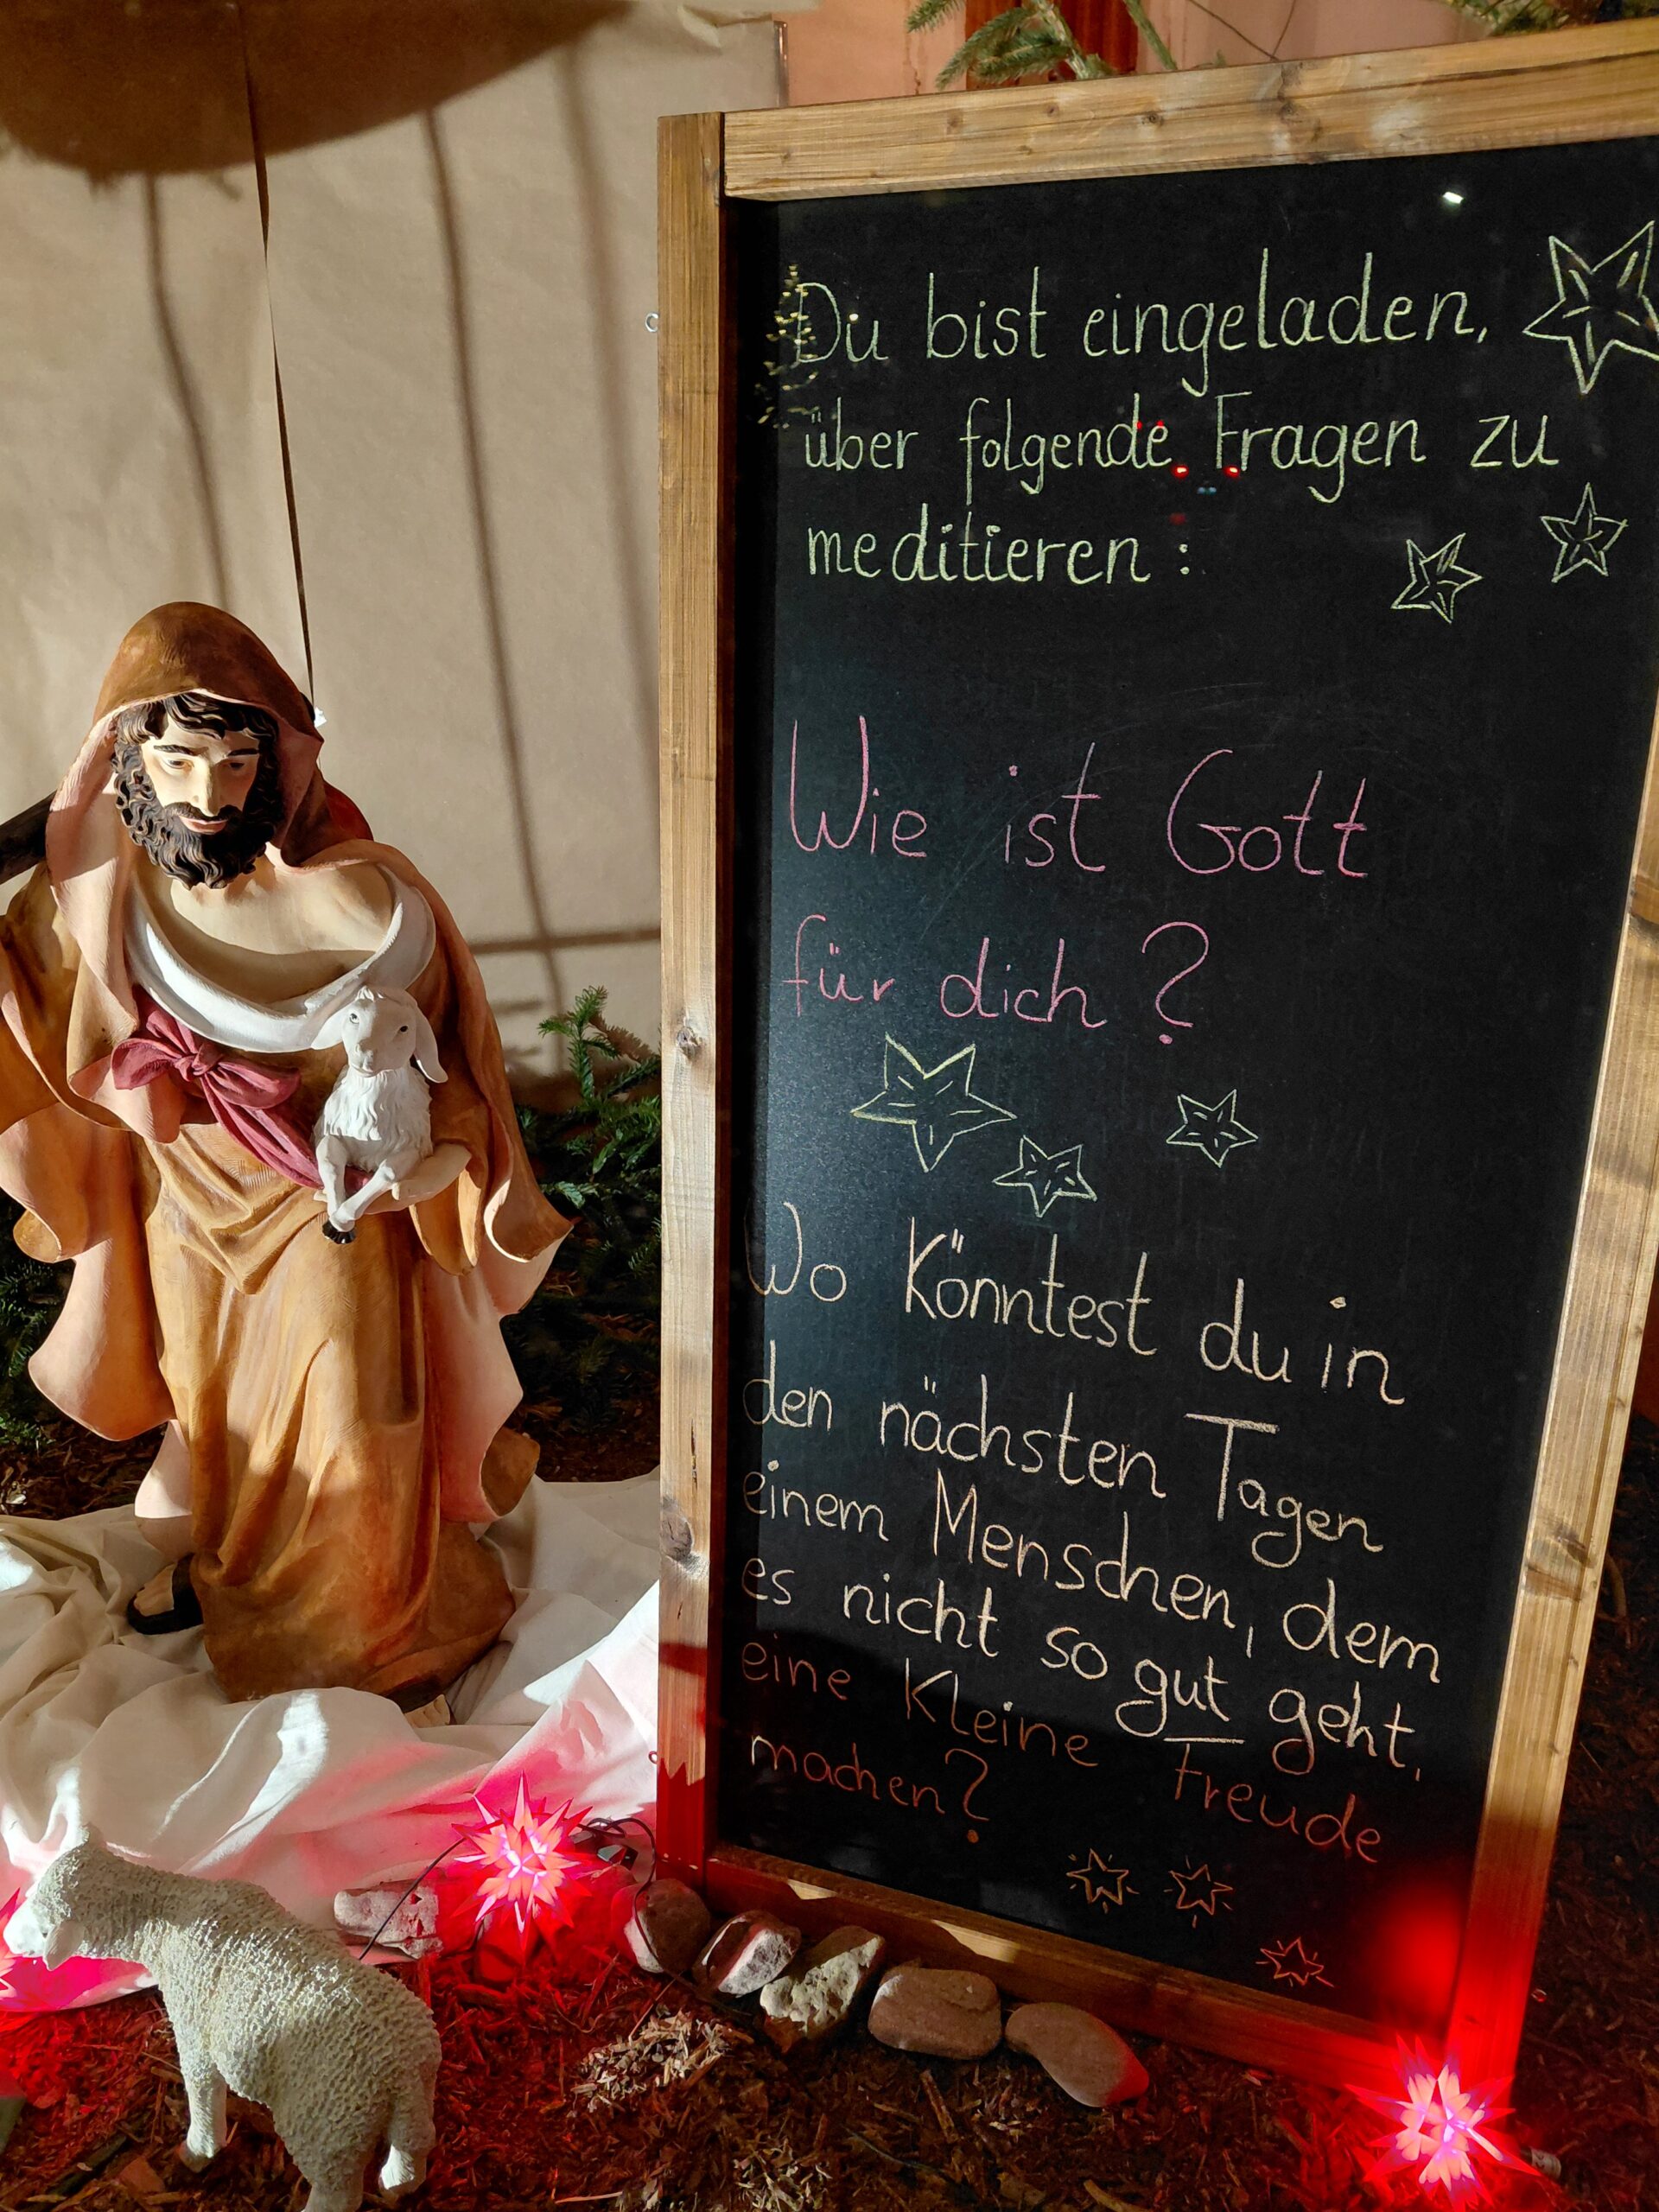 Du bist eingeladen,
über folgende Fragen zu
meditieren :
Wie ist Gott
für dich ?
Wo könntest du in
den nächsten Tagen
einem Menschen, dem
es nicht so gut geht,
eine kleine Freude
machen?